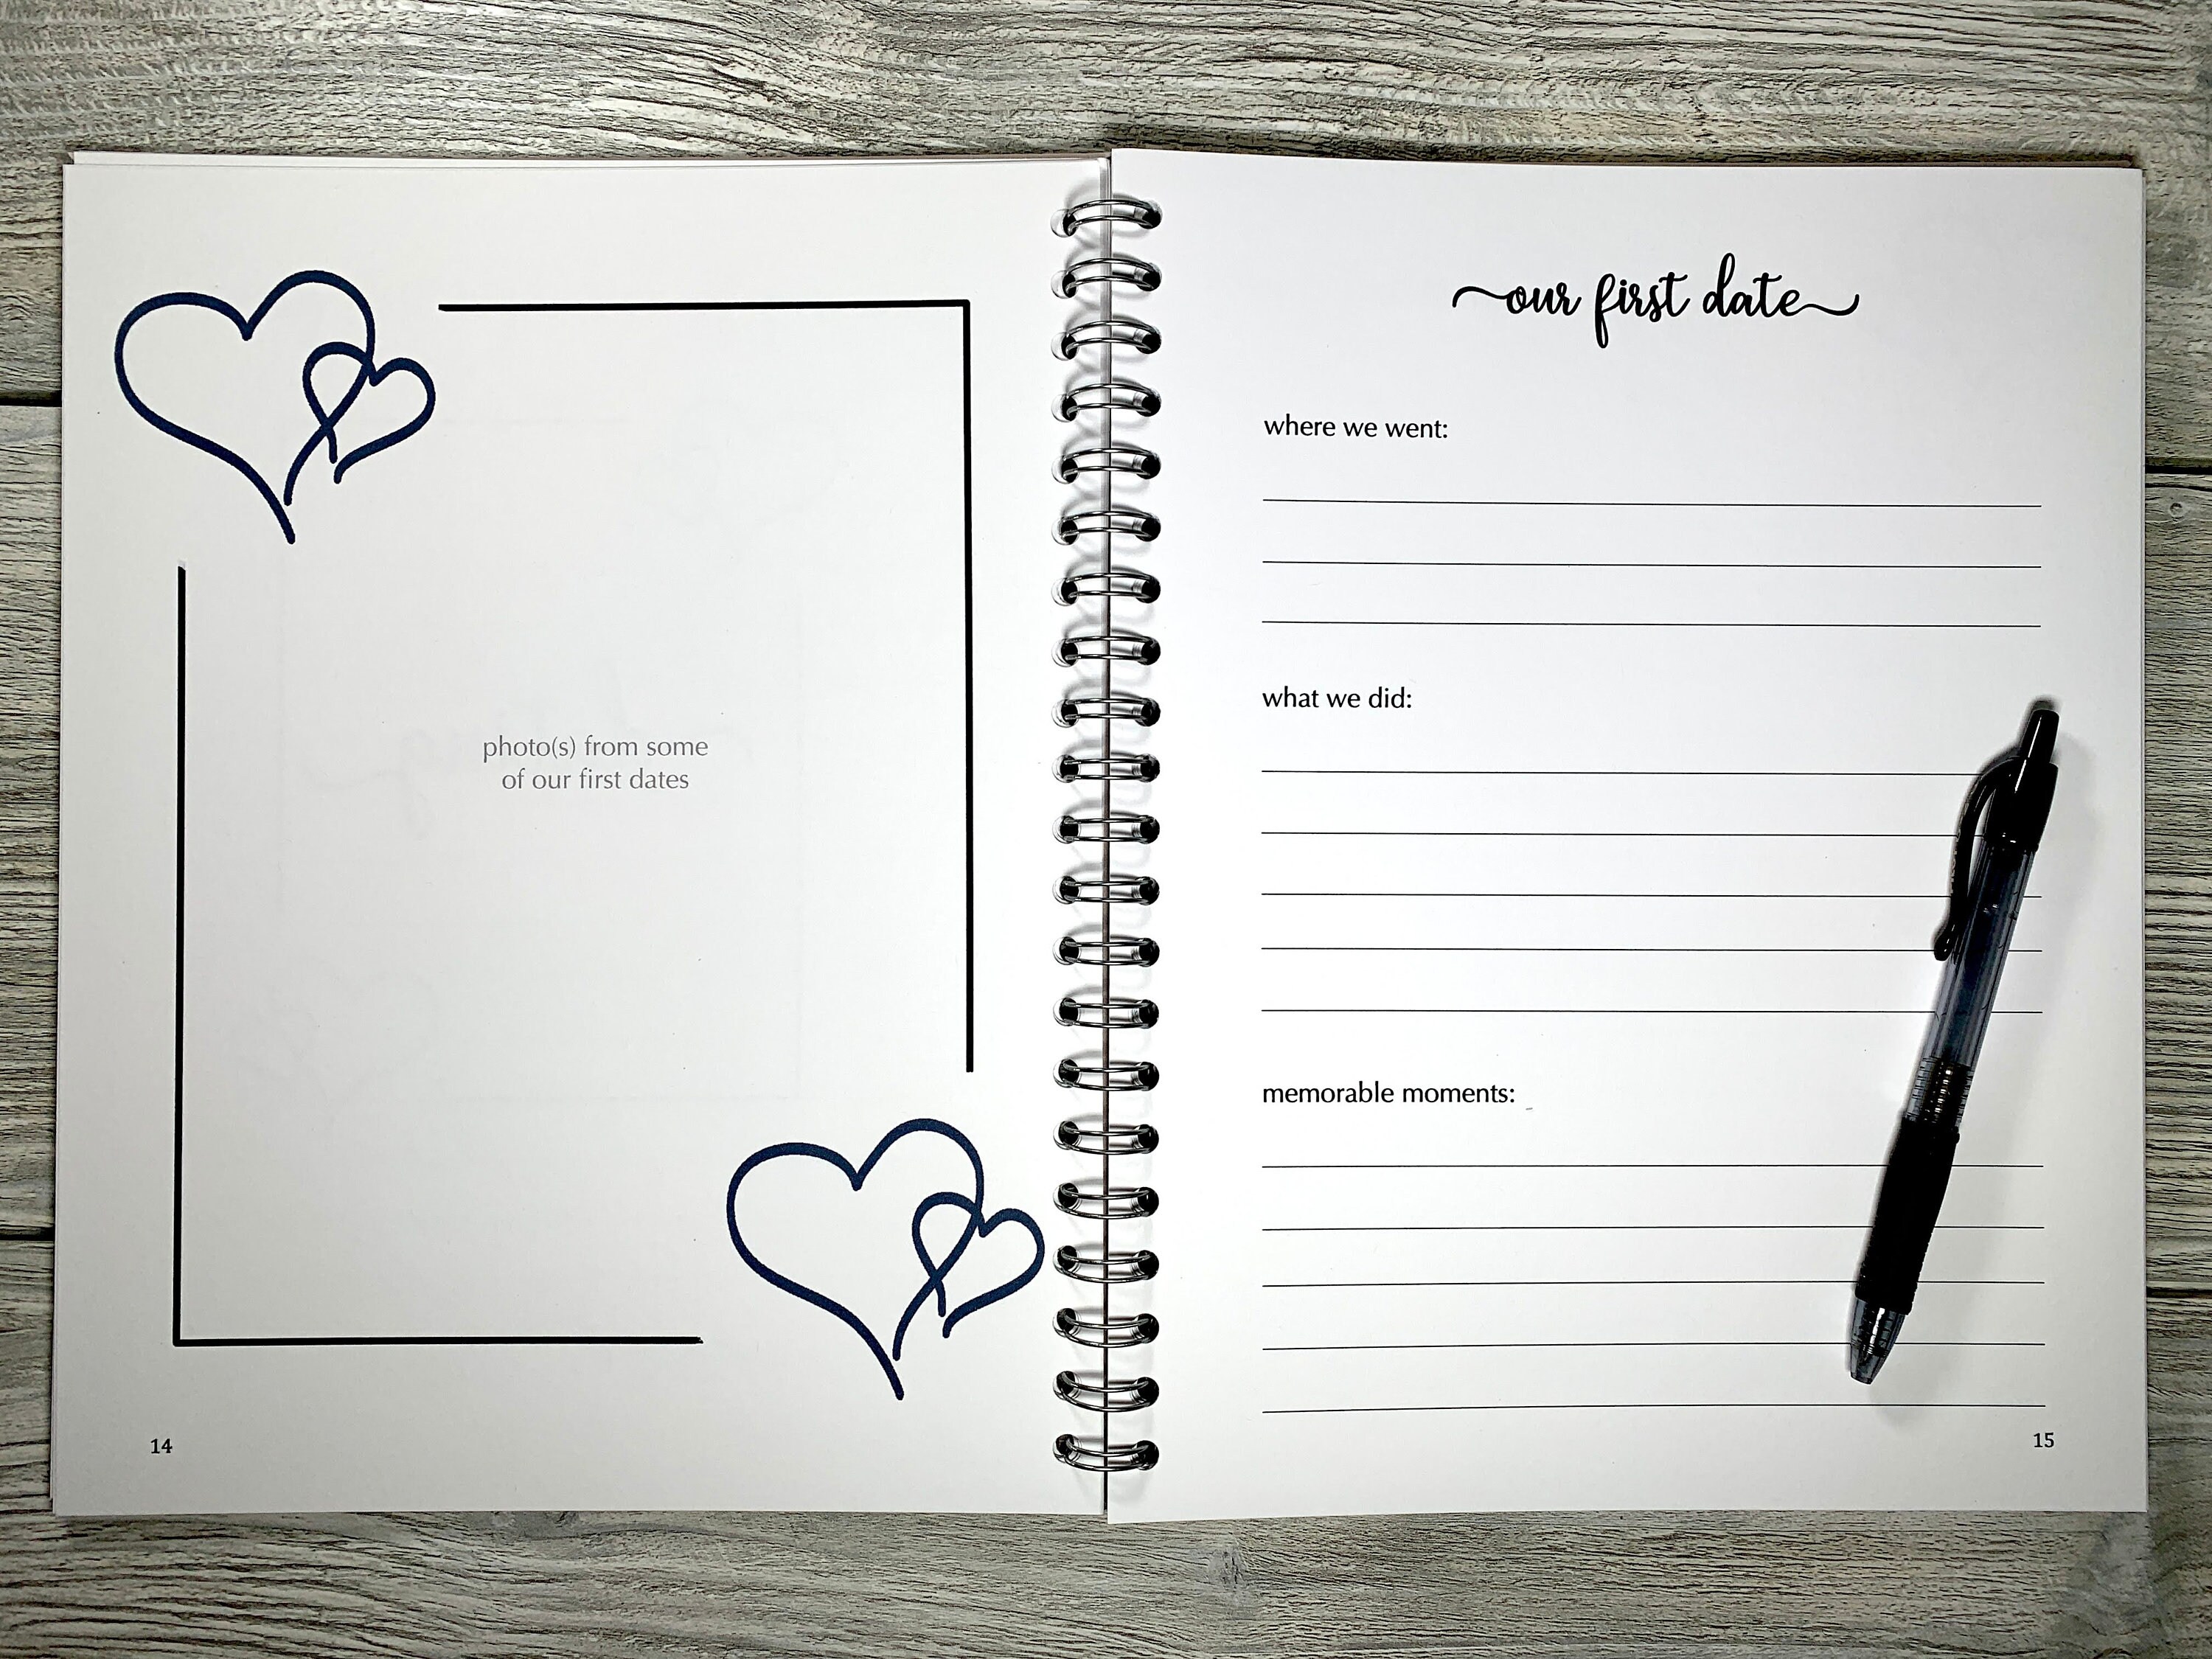 photo(s) from some
of our first dates
14
our first date
where we went:
what we did:
memorable moments:
15